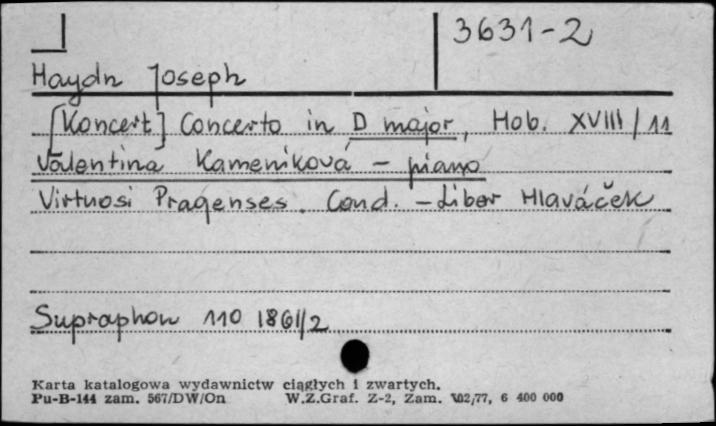 3631-2
Haydn Joseph
[Koncert] Concerto in D major, Hob. XVIII/11
Valentina Kameníková - piano
Virtuosi Pragenses. Cond. - Libor Hlaváček
Supraphon 110 1861/2
Karta katalogowa wydawnictw ciągłych i zwartych.
Pu-B-144 zam. 567/DW/On W.Z.Graf. Z-2, Zam. 102/77, 6 400 000